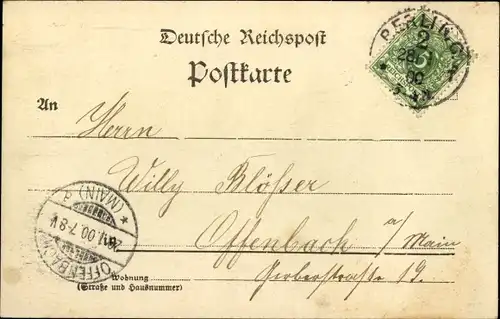 Deutsche Reichspost
Postkarte
An
Herrn
Willy Blößer
Offenbach a/Main
Gerberstraße 19.
Wohnung
(Straße und Hausnummer)
BERLIN, C.
2
28
00
5
OFFENBACH
(MAIN)
00.7-8V.